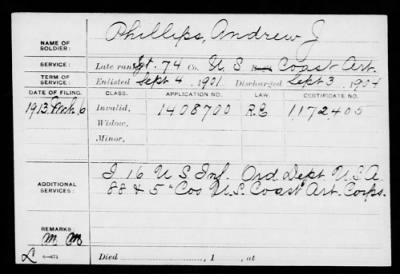 Phillips, Andrew J
NAME OF SOLDIER:
SERVICE: Late rank Sgt. 74 Co. U S Coast Art.
TERM OF SERVICE: Enlisted Sept 4, 1901. Discharged Sept 3, 1904
DATE OF FILING. CLASS. APPLICATION NO. LAW. CERTIFICATE NO.
1913 Feb. 6 Invalid, 1408700 R.E. 1172405
Widow,
Minor,
ADDITIONAL SERVICES: I 16 U S Inf. Ord Dept U.S.A.
88 & 5" Cos U.S. Coast Art. Corps.
REMARKS:
M M
Died , 1 , at